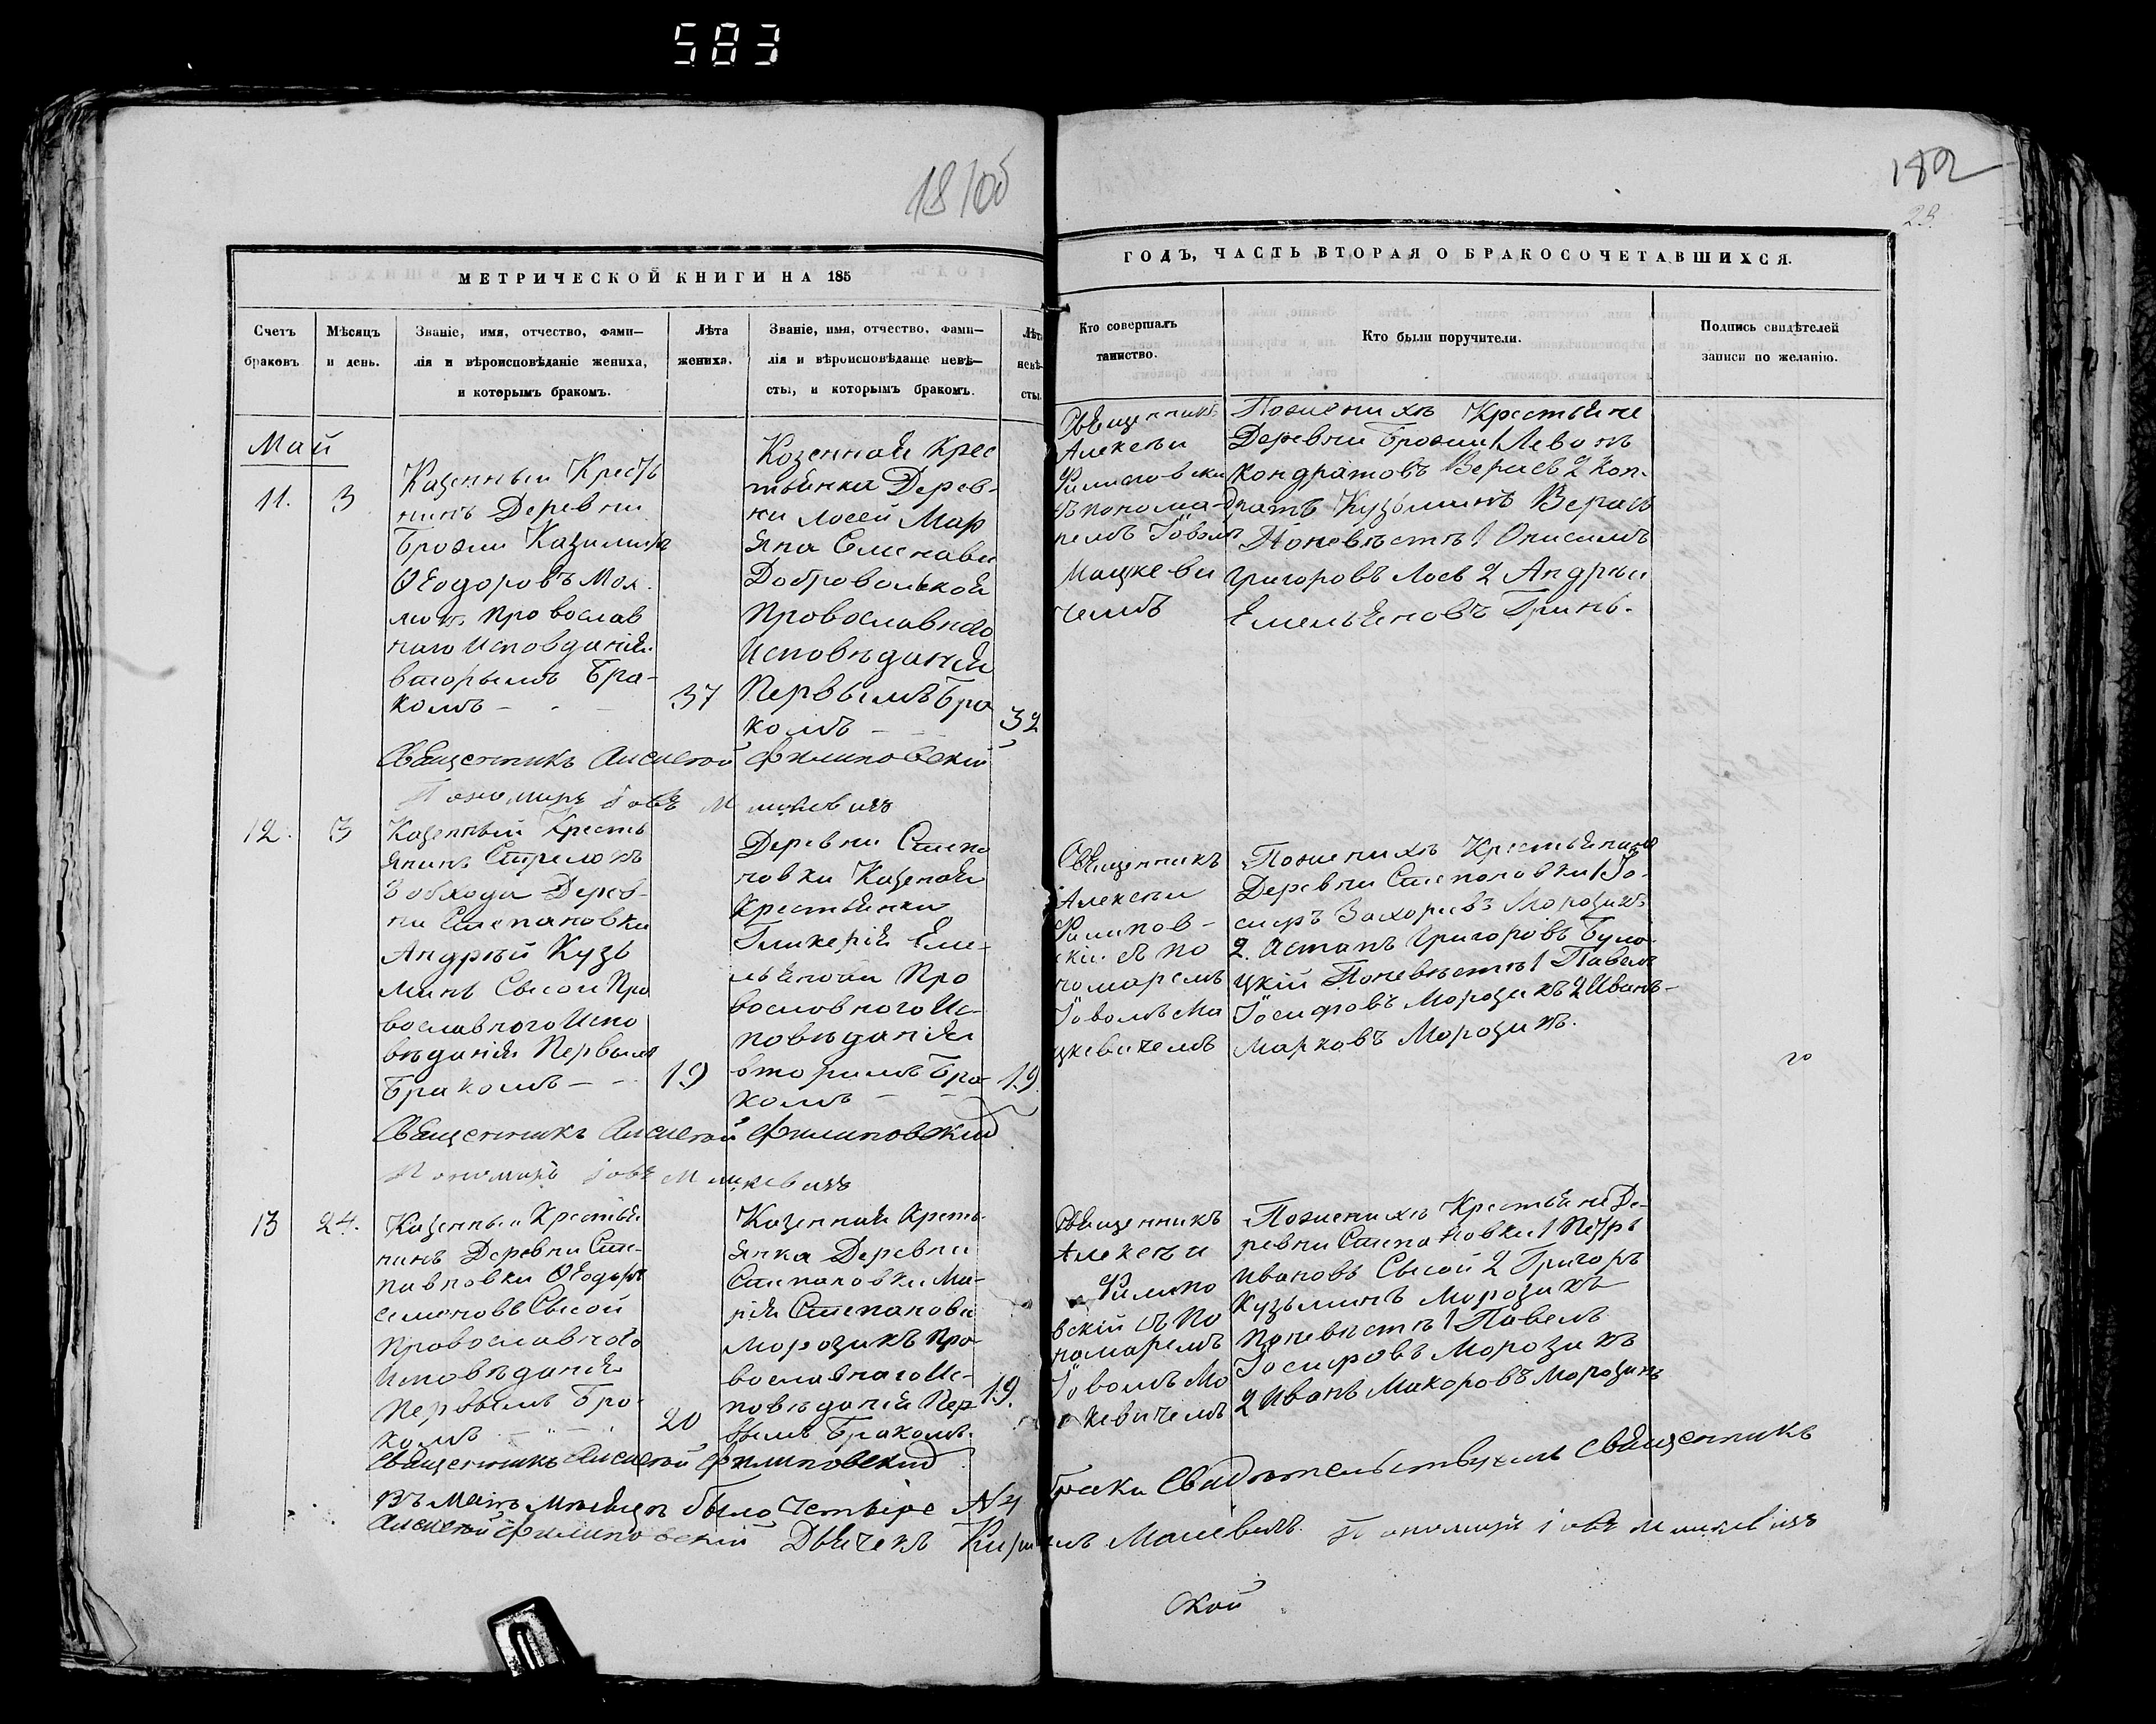 583
18/об
182
23
МЕТРИЧЕСКОЙ КНИГИ НА 185
ГОДЪ, ЧАСТЬ ВТОРАЯ О БРАКОСОЧЕТАВШИХСЯ.
Счетъ
браковъ
Мѣсяцъ
и день.
Званіе, имя, отчество, фами—
лія и вѣроисповѣданіе жениха,
и которымъ бракомъ.
Лѣта
жениха.
Званіе, имя, отчество, фами—
лія и вѣроисповѣданіе невѣ—
сты, и которымъ бракомъ.
Лѣта
невѣ-
сты.
Кто совершалъ
таинство.
Кто были поручители.
Подпись свидѣтелей
записи по желанію.
Май
11.
3
Казенный Кресть
нинъ Деревни
Брожи Казимиръ
Ѳеодоровъ Мол
Провослав
наго Исповѣданія
вторымъ Бра-
комъ — - —
37
Козенная Крес
тьянка Дерев-
ни Лосей Мар
яна Семенова
Добровольская
Провославного
Исповѣданія
Первымъ Бра
комъ — -
32
Священникъ
Алексѣи
Филиповски
съ понома-
ремъ Іовомъ
Мацкеви
чемъ
Пожениху Крестьяне
Деревни Брожи 1 Левонъ
Кондратовъ Верасъ 2 Кон-
дратъ Кузьминъ Верасъ
Поневѣстѣ 1 Онисимъ
Григоровъ Лось 2 Андрѣи
Емельяновъ Гринь.
Священникъ Алексѣй Филиповскій
Пономарь Іовъ Мацкевичъ
12.
3
Казенный Кресть
янинъ Стрелокъ
Обхода Дерев-
ни Степановки
Андрѣй Кузь
минъ Сысой Про
вославного Испо
вѣданія Первымъ
Бракомъ — -
19
Деревни Степо
новки Казеная
Крестьянка
Гликерія Еме-
льянова Про
вословного Ис-
повѣданія
вторимъ Бра-
комъ — —
19.
Священникъ
Алексѣи
Филипов-
скій съ по
номаремъ
Іовомъ Ма
цкевичемъ
Пожениху Крестьянины
Деревни Степоновки 1 Іо-
сифъ Захоріевъ Морозикъ
2. Астапъ Григоровъ Було
цкій Поневѣстѣ 1 Павелъ
Іосифовъ Морозикъ 2 Иванъ-
Марковъ Морозикъ.
Священникъ Алексѣй Филиповскій
Пономарь Іовъ Мацкевичъ
13
24.
Казенны Крестья
нинъ Деревни Сте-
пановки Ѳеодоръ
Семеновъ Сысой
Провославного
Исповѣданія
Первымъ Бра-
комъ
20
Казенная Кресть
янка Деревни
Степановки Ма-
рія Степанова
Морозикъ Про-
вославнаго Ис-
повѣданія Пер
вымъ Бракомъ.
19.
Священникъ
Алексѣи
Филипо
вскій съ По
номаремъ
Іовомъ Ма
цкевичемъ
Пожениху Крестьяне Де-
ревни Степановки 1 Петръ
Ивановъ Сысой 2 Григоръ
Кузьминъ Морозикъ
Поневѣстѣ 1 Павелъ
Іосифовъ Морозикъ
2 Иванъ Макоровъ Морозикъ
Священникъ Алексѣй Филиповскій
Въ Маѣ Мѣсяцѣ было Четыре № 4 Брака Свидѣтельствуемъ Священникъ
Алексѣй Филиповскій Дьячекъ Пономарь Іовъ Мацкевичъ
ской